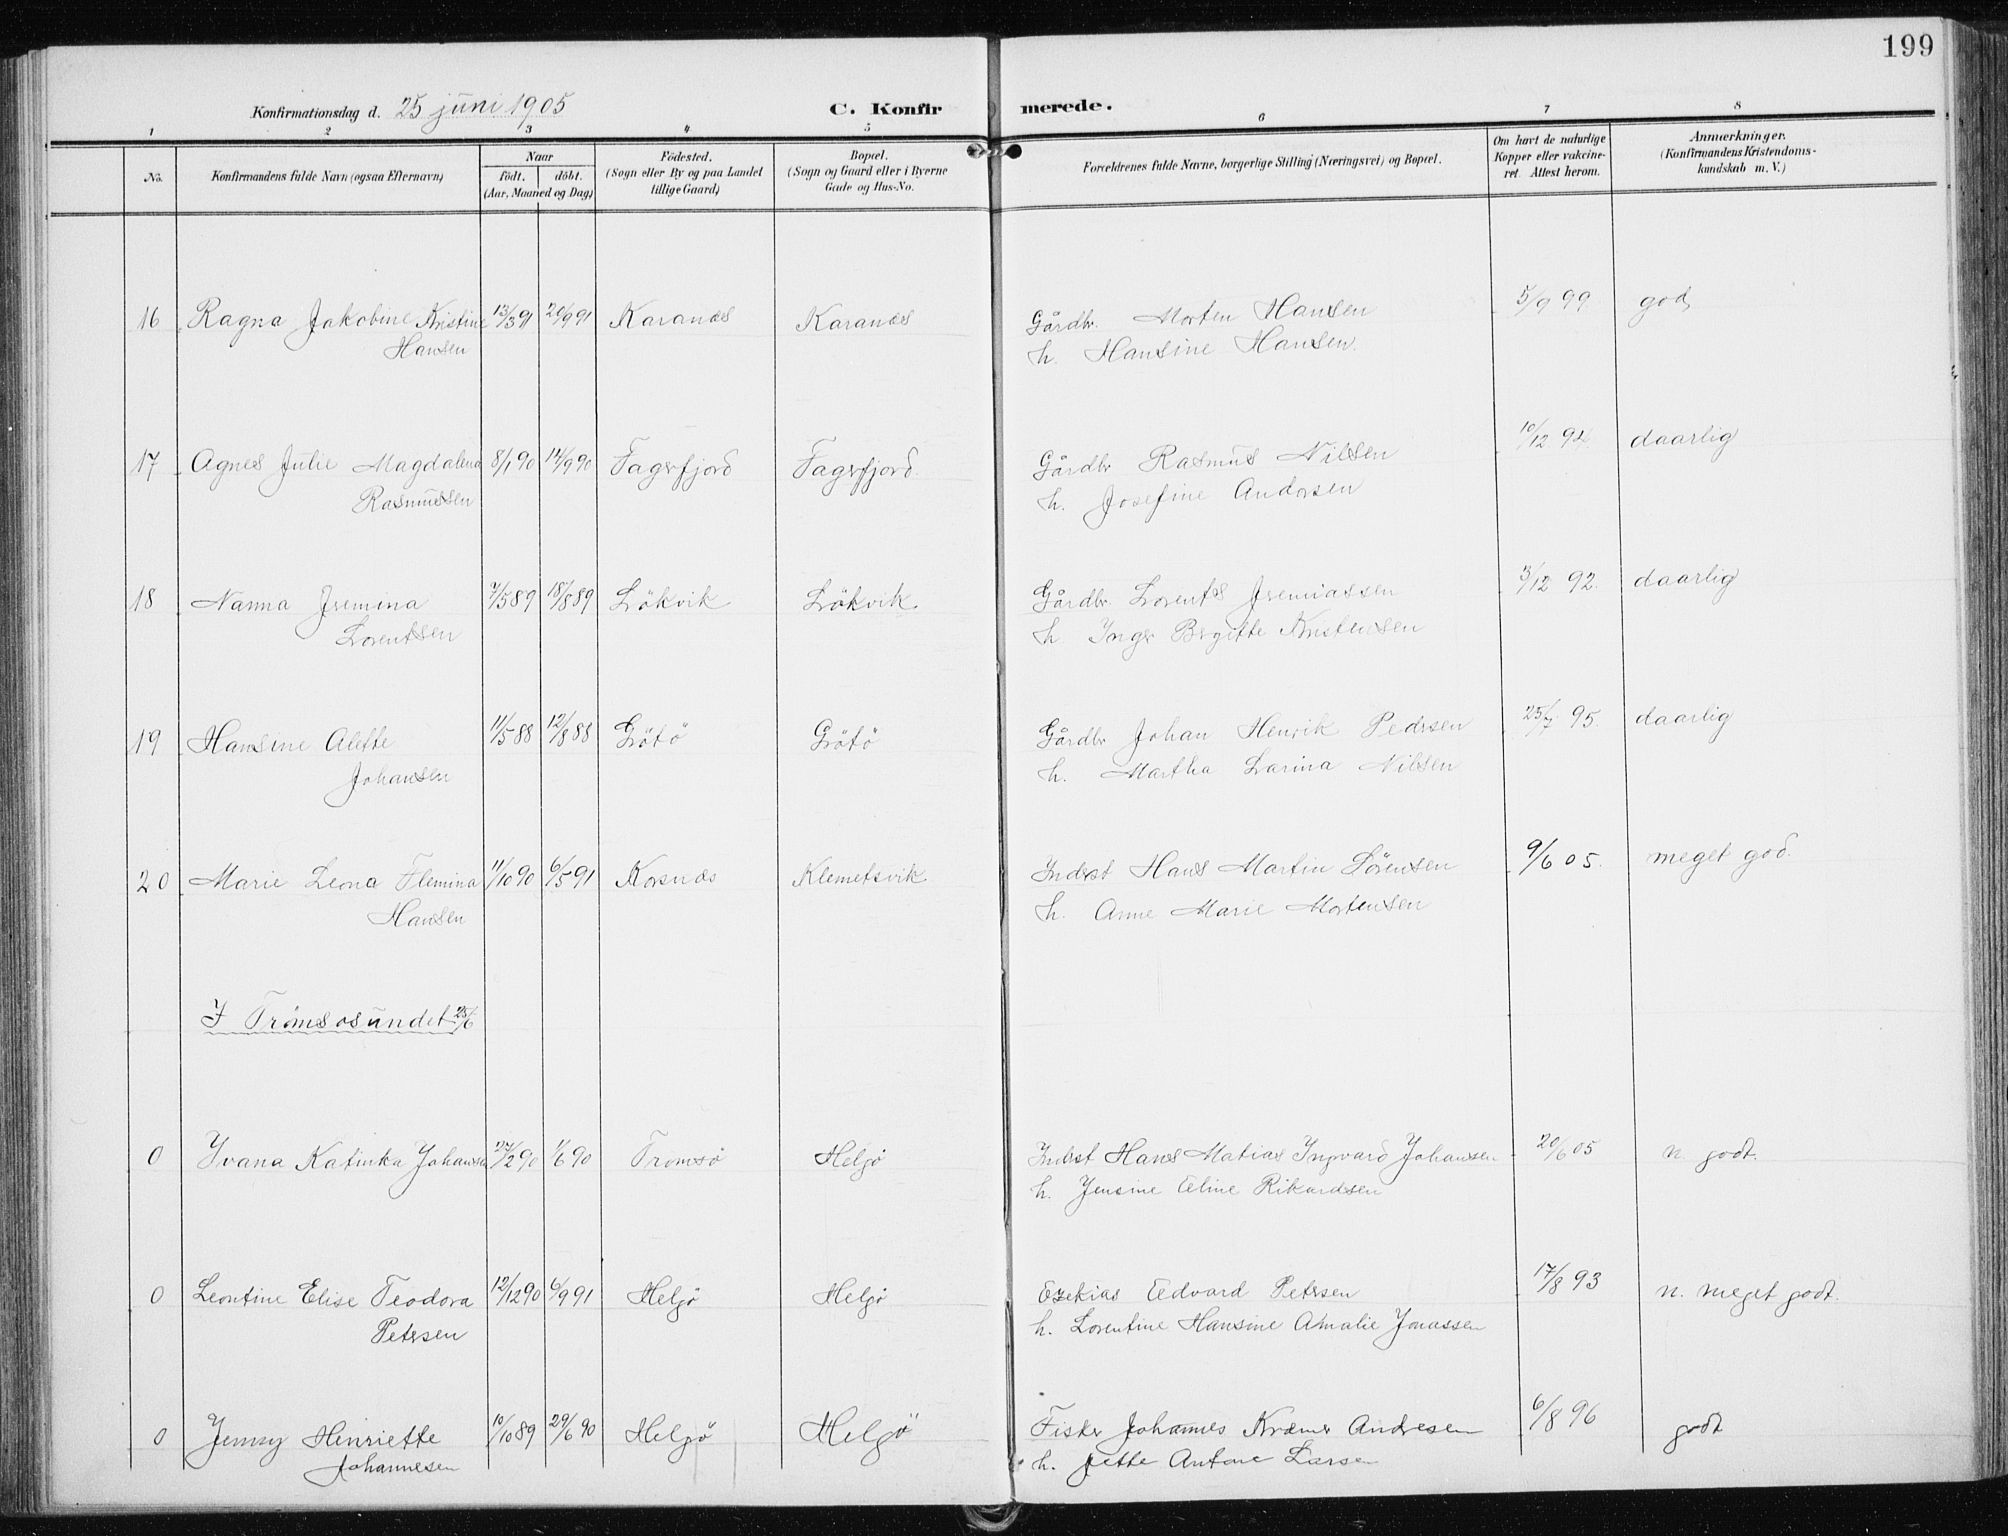 199
Konfirmationsdag d. 25 juni 1905 C. Konfirmerede.
1 2 3 4 5 6 7 8
No.
Konfirmandens fulde Navn (ogsaa Efternavn)
Naar
födt. döbt.
(Aar, Maaned og Dag)
Födested.
(Sogn eller By og paa Landet
tillige Gaard)
Bopæl.
(Sogn og Gaard eller i Byerne
Gade og Hus-No.
Forældrenes fulde Navne, borgerlige Stilling (Næringsvei) og Bopæl.
Om havt de naturlige
Kopper eller vakcine-
ret. Attest herom.
Anmærkninger.
(Konfirmandens Kristendoms-
kundskab m. V.)
16 Ragna Jakobine Kristine 13/3 91 20/9 91 Karanæs Karanæs Gårdbr. Morten Hansen 5/9 99 god
Hansen h. Hansine Hansen.
17 Agnes Julie Magdalena 8/1 90 14/9 90 Fagerfjord Fagerfjord. Gårdbr Rasmus Nilsen 10/12 94 daarlig
Rasmussen h. Josefine Andersen
18 Nanna Jremina 7/5 89 18/8 89 Lökvik Lökvik Gårdbr Lorents Jremiassen 3/12 92. daarlig
Lorentsen h Inger Bergitte Kristensen
19 Hansine Alette 11/5 88 12/8 88 Grötö Grötö Gårdbr Johan Henrik Pedersen 25/7 95. daarlig
Johansen h. Martha Larina Nilsen
20 Marie Leona Flemina 11/10 90 6/5 91 Korsnæs Klemetsvik Inderst Hans Martin Sörensen 9/6 05. meget god.
Hansen h. Anne Marie Mortensen
I Tromsøsundet 25/6
0 Yvana Katinka Johansen 27/2 90 1/6 90 Tromsö Helgö Inderst Hans Matias Ingvard Johansen 20/6 05 n. godt.
h. Jensine Eline Rikardsen
0 Leontine Elise Teodora 12/12 90 6/9 91 Helgö Helgö Ezekias Edvard Petersen 17/8 93 n. meget godt.
Petersen h. Lorentine Hansine Amalie Jonassen
0 Jenny Henriette 10/10 89 29/6 90 Helgö Helgö Fisker Johannes Kræmer Andresen 6/8 96 godt
Johannesen h. Jette Antone Larsen